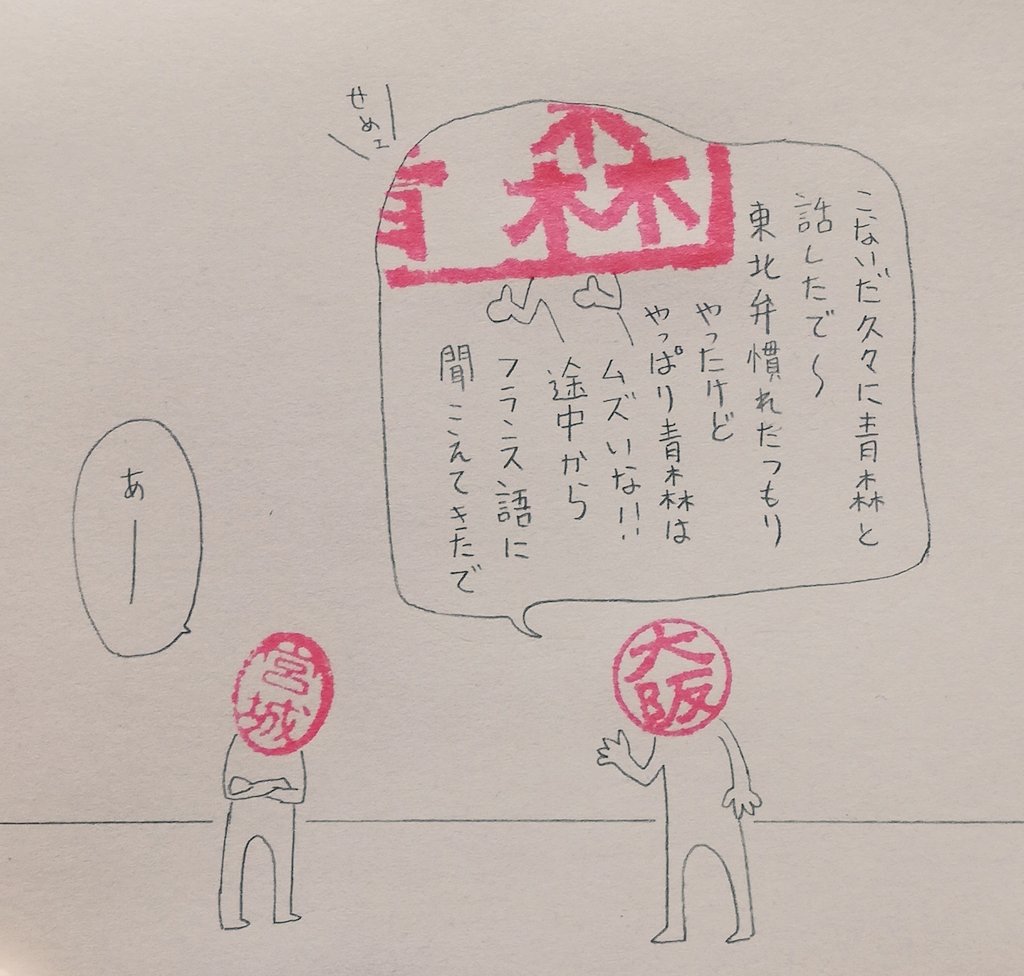 こないだ久々に青森と
話したで〜
東北弁慣れたつもり
やったけど
やっぱり青森は
ムズいな!!
途中から
フランス語に
聞こえてきたで
青森
せめェ
大阪
あー
宮城